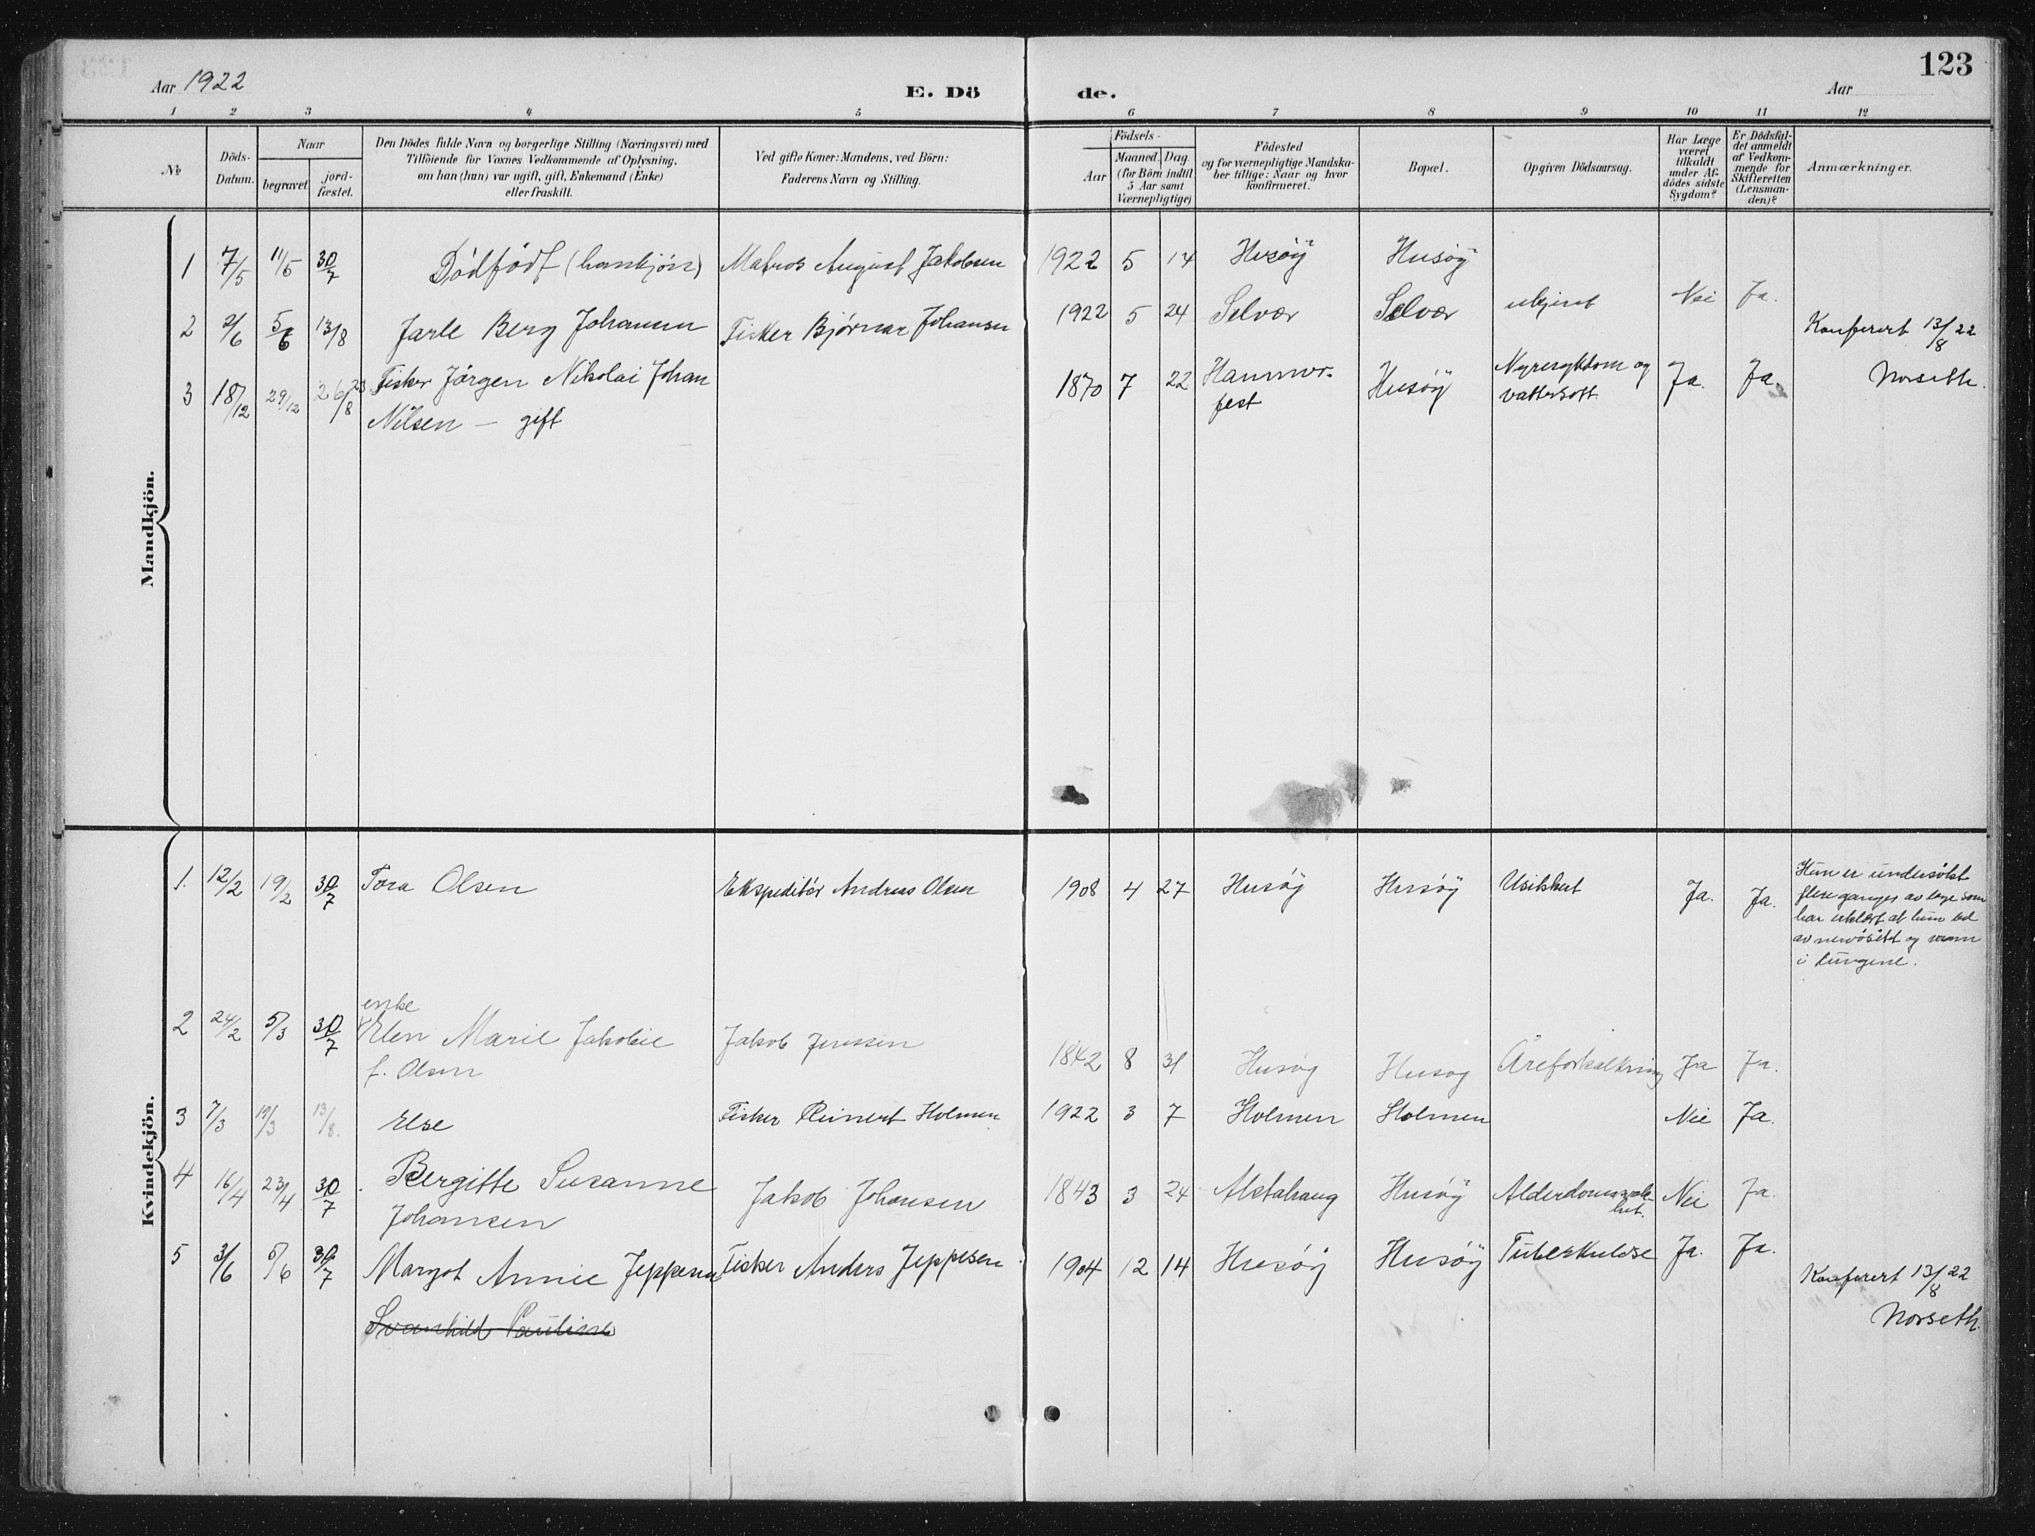 Aar 1922
E. Dö
de.
Aar
123
1 2 3 4 5 6 7 8 9 10 11 12
№
Döds-
Datum.
Naar
begravet.
jord-
fæstet.
Den Dödes fulde Navn og borgerlige Stilling (Næringsvei) med
Tilföiende for Voxnes Vedkommende af Oplysning,
om han (hun) var ugift, gift, Enkemand (Enke)
eller fraskilt.
Ved gifte Koner: Mandens, ved Börn:
Faderens Navn og Stilling.
Födsels-
Aar
Maaned.
Dag
(for Börn indtil
5 Aar samt
Værnepligtige)
Födested
og for værnepligtige Mandska-
ber tillige: Naar og hvor
konfirmeret.
Bopæl.
Opgiven Dödsaarsag.
Har Læge
været
tilkaldt
under Af-
dödes sidste
Sygdom?
Er Dödsfal-
det anmeldt
af Vedkom-
mende for
Skifteretten
(Lensman-
den)?
Anmærkninger.
Mandkjön.
1 7/5 11/5 30/7 Dödfödt (hankjön) Matros August Jakobsen 1922 5 14 Husöy Husöy
2 2/6 5/6 13/8 Jarle Berg Johansen Fisker Bjørnar Johansen 1922 5 24 Selvær Selvær ukjent Nei Ja.
Konferert 13/8 22
Norseth.
3 18/12 29/12 26/8 23 Fisker Jörgen Nikolai Johan
Nilsen — gift
1870 7 22 Hammer-
fest
Husöy Nyresykdom og
vattersott
Ja. Ja.
Kvindekjön.
1. 12/2 19/2 30/7 Tora Olsen Ekspeditör Andreas Olsen 1908 4 27 Husöy Husöy Usikkert Ja. Ja.
Hun er undersökt
flere ganger av lege som
har erklært at hun led
av nervösitet og vann
i lungene.
2 24/2 5/3 30/7 enke
Elen Marie Jakobie
f. Olsen
Jakob Jenssen 1842 8 31 Husøy Husøy Åreforkalkning Ja Ja.
3 7/3 19/3 13/8. Else Fisker Reinert Holmen 1922 3 7 Holmen Holmen Nei Ja.
4 16/4 23/4 30/7 Bergitte Susanne
Johansen
Jakob Johansen 1843 3 24 Alstahaug Husöy Alderdomssvak-
het.
Nei Ja.
5 3/6 5/6 30/7 Margot Annie Jeppesen Fisker Anders Jeppesen 1904 12 14 Husöy Husöy Tuberkulose Ja. Ja.
Svanhild Pauline
Konferert 13/8 22
Norseth.